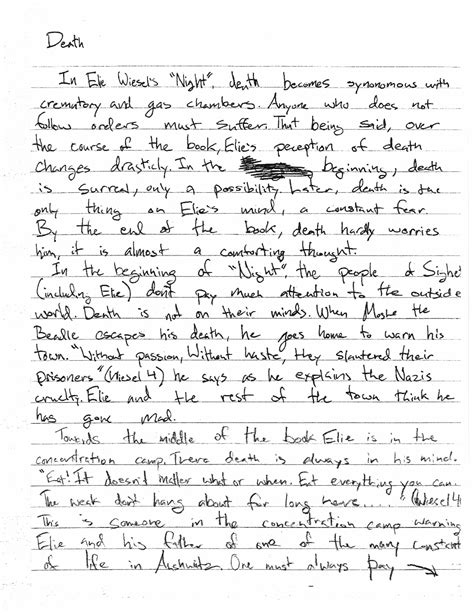 Death
In Elie Wiesel's "Night", death becomes synonomous with
crematory and gas chambers. Anyone who does not
follow orders must suffer. That being said, over
the course of the book, Elie's perception of death
changes drasticly. In the beginning, death
is surreal, only a possibility. Later, death is the
only thing on Elie's mind, a constant fear.
By the end of the book, death hardly worries
him, it is almost a comforting thought.
In the beginning of "Night", the people of Sighet
(including Elie) don't pay much attention to the outside
world. Death is not on their minds. When Moshe the
Beadle escapes his death, he goes home to warn his
town. "Without passion, Without haste, they slautered their
prisoners" (Wiesel 4) he says as he explains the Nazis
cruelty. Elie and the rest of the town think he
has gone mad.
Towards the middle of the book Elie is in the
concentration camp. There death is always in his mind.
"Eat! It doesn't matter what or when. Eat everything you can.
The weak don't hang about for long here...." (Wiesel 4
This is someone in the concentration camp warning
Elie and his father of one of the many constant
of life in Auchwitz. One must always pay →